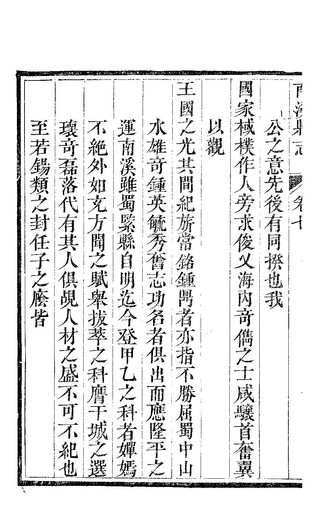 南溪縣志 卷七
公之意先後有同揆也我
國家棫樸作人旁求俊乂海內奇儁之士咸驤首奮翼
以觀
王國之光其間紀旂常銘鍾卣者亦指不勝屈蜀中山
水雄奇鍾英毓秀奮志功名者俱出而應隆平之
運南溪雖蜀緊縣自明迄今登甲乙之科者嬋嫣
不絕外如玄方聞之賦舉拔萃之科膺干城之選
瓌奇磊落代有其人俱覘人材之盛不可不紀也
至若錫類之封任子之廕皆